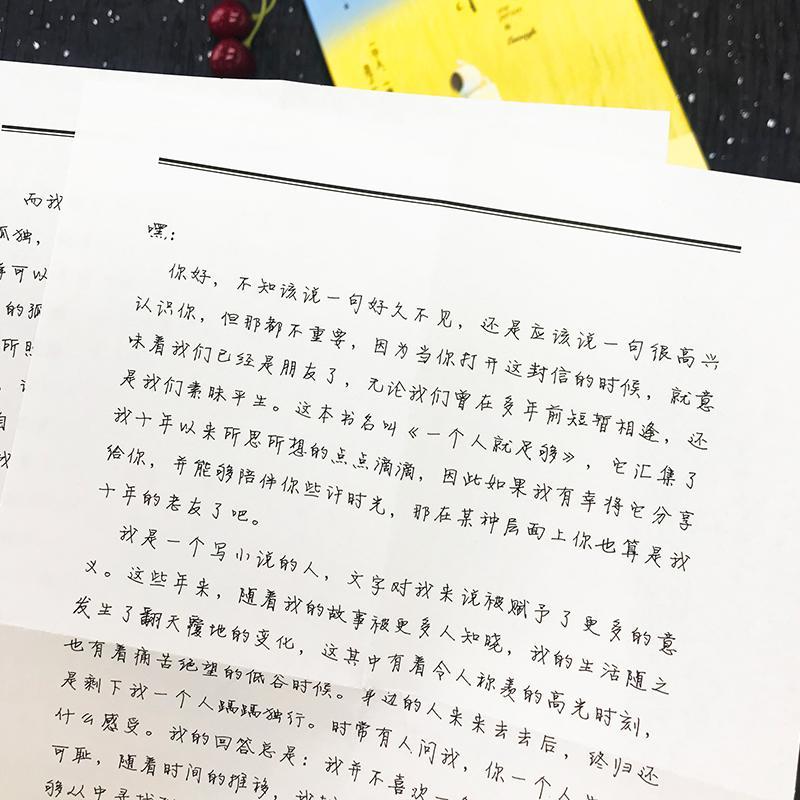 嘿：
你好，不知该说一句好久不见，还是应该说一句很高兴
认识你，但那都不重要，因为当你打开这封信的时候，就意
味着我们已经是朋友了，无论我们曾在多年前短暂相逢，还
是我们素昧平生。这本书名叫《一个人就足够》，它汇集了
我十年以来所思所想的点点滴滴，因此如果我有幸将它分享
给你，并能够陪伴你些许时光，那在某种层面上你也算是我
十年的老友了吧。
我是一个写小说的人，文字对我来说被赋予了更多的意
义。这些年来，随着我的故事被更多人知晓，我的生活随之
发生了翻天覆地的变化，这其中有着令人称羡的高光时刻，
也有着痛苦绝望的低谷时候。身边的人来来去去后，终归还
是剩下我一个人踽踽独行。时常有人问我，你一个人
什么感受。我的回答总是：我并不喜欢一个
可耻，随着时间的推移，我
够从中寻找
而我
孤独，
可以
的孤
所
自
我